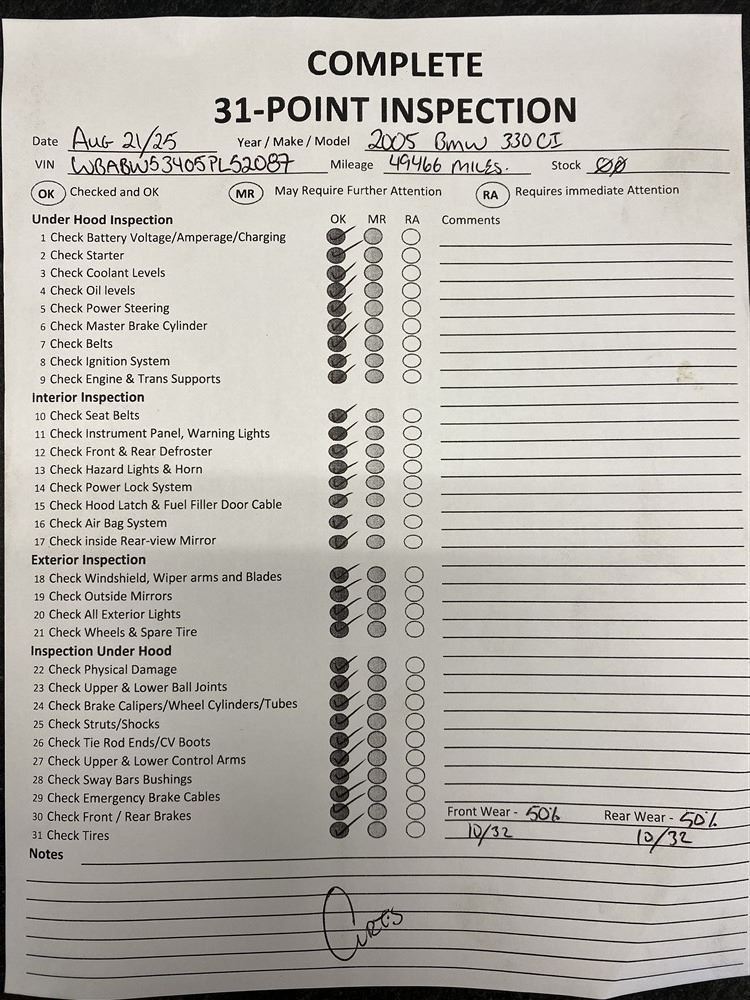 COMPLETE
31-POINT INSPECTION
Date Aug 21/25 Year / Make / Model 2005 Bmw 330 CI
VIN WBABW53405PL52087 Mileage 49466 MILES. Stock 00
OK Checked and OK MR May Require Further Attention RA Requires immediate Attention
Under Hood Inspection OK MR RA Comments
1 Check Battery Voltage/Amperage/Charging
2 Check Starter
3 Check Coolant Levels
4 Check Oil levels
5 Check Power Steering
6 Check Master Brake Cylinder
7 Check Belts
8 Check Ignition System
9 Check Engine & Trans Supports
Interior Inspection
10 Check Seat Belts
11 Check Instrument Panel, Warning Lights
12 Check Front & Rear Defroster
13 Check Hazard Lights & Horn
14 Check Power Lock System
15 Check Hood Latch & Fuel Filler Door Cable
16 Check Air Bag System
17 Check inside Rear-view Mirror
Exterior Inspection
18 Check Windshield, Wiper arms and Blades
19 Check Outside Mirrors
20 Check All Exterior Lights
21 Check Wheels & Spare Tire
Inspection Under Hood
22 Check Physical Damage
23 Check Upper & Lower Ball Joints
24 Check Brake Calipers/Wheel Cylinders/Tubes
25 Check Struts/Shocks
26 Check Tie Rod Ends/CV Boots
27 Check Upper & Lower Control Arms
28 Check Sway Bars Bushings
29 Check Emergency Brake Cables
30 Check Front / Rear Brakes Front Wear - 50% Rear Wear - 50%
31 Check Tires 10/32 10/32
Notes
Curtis